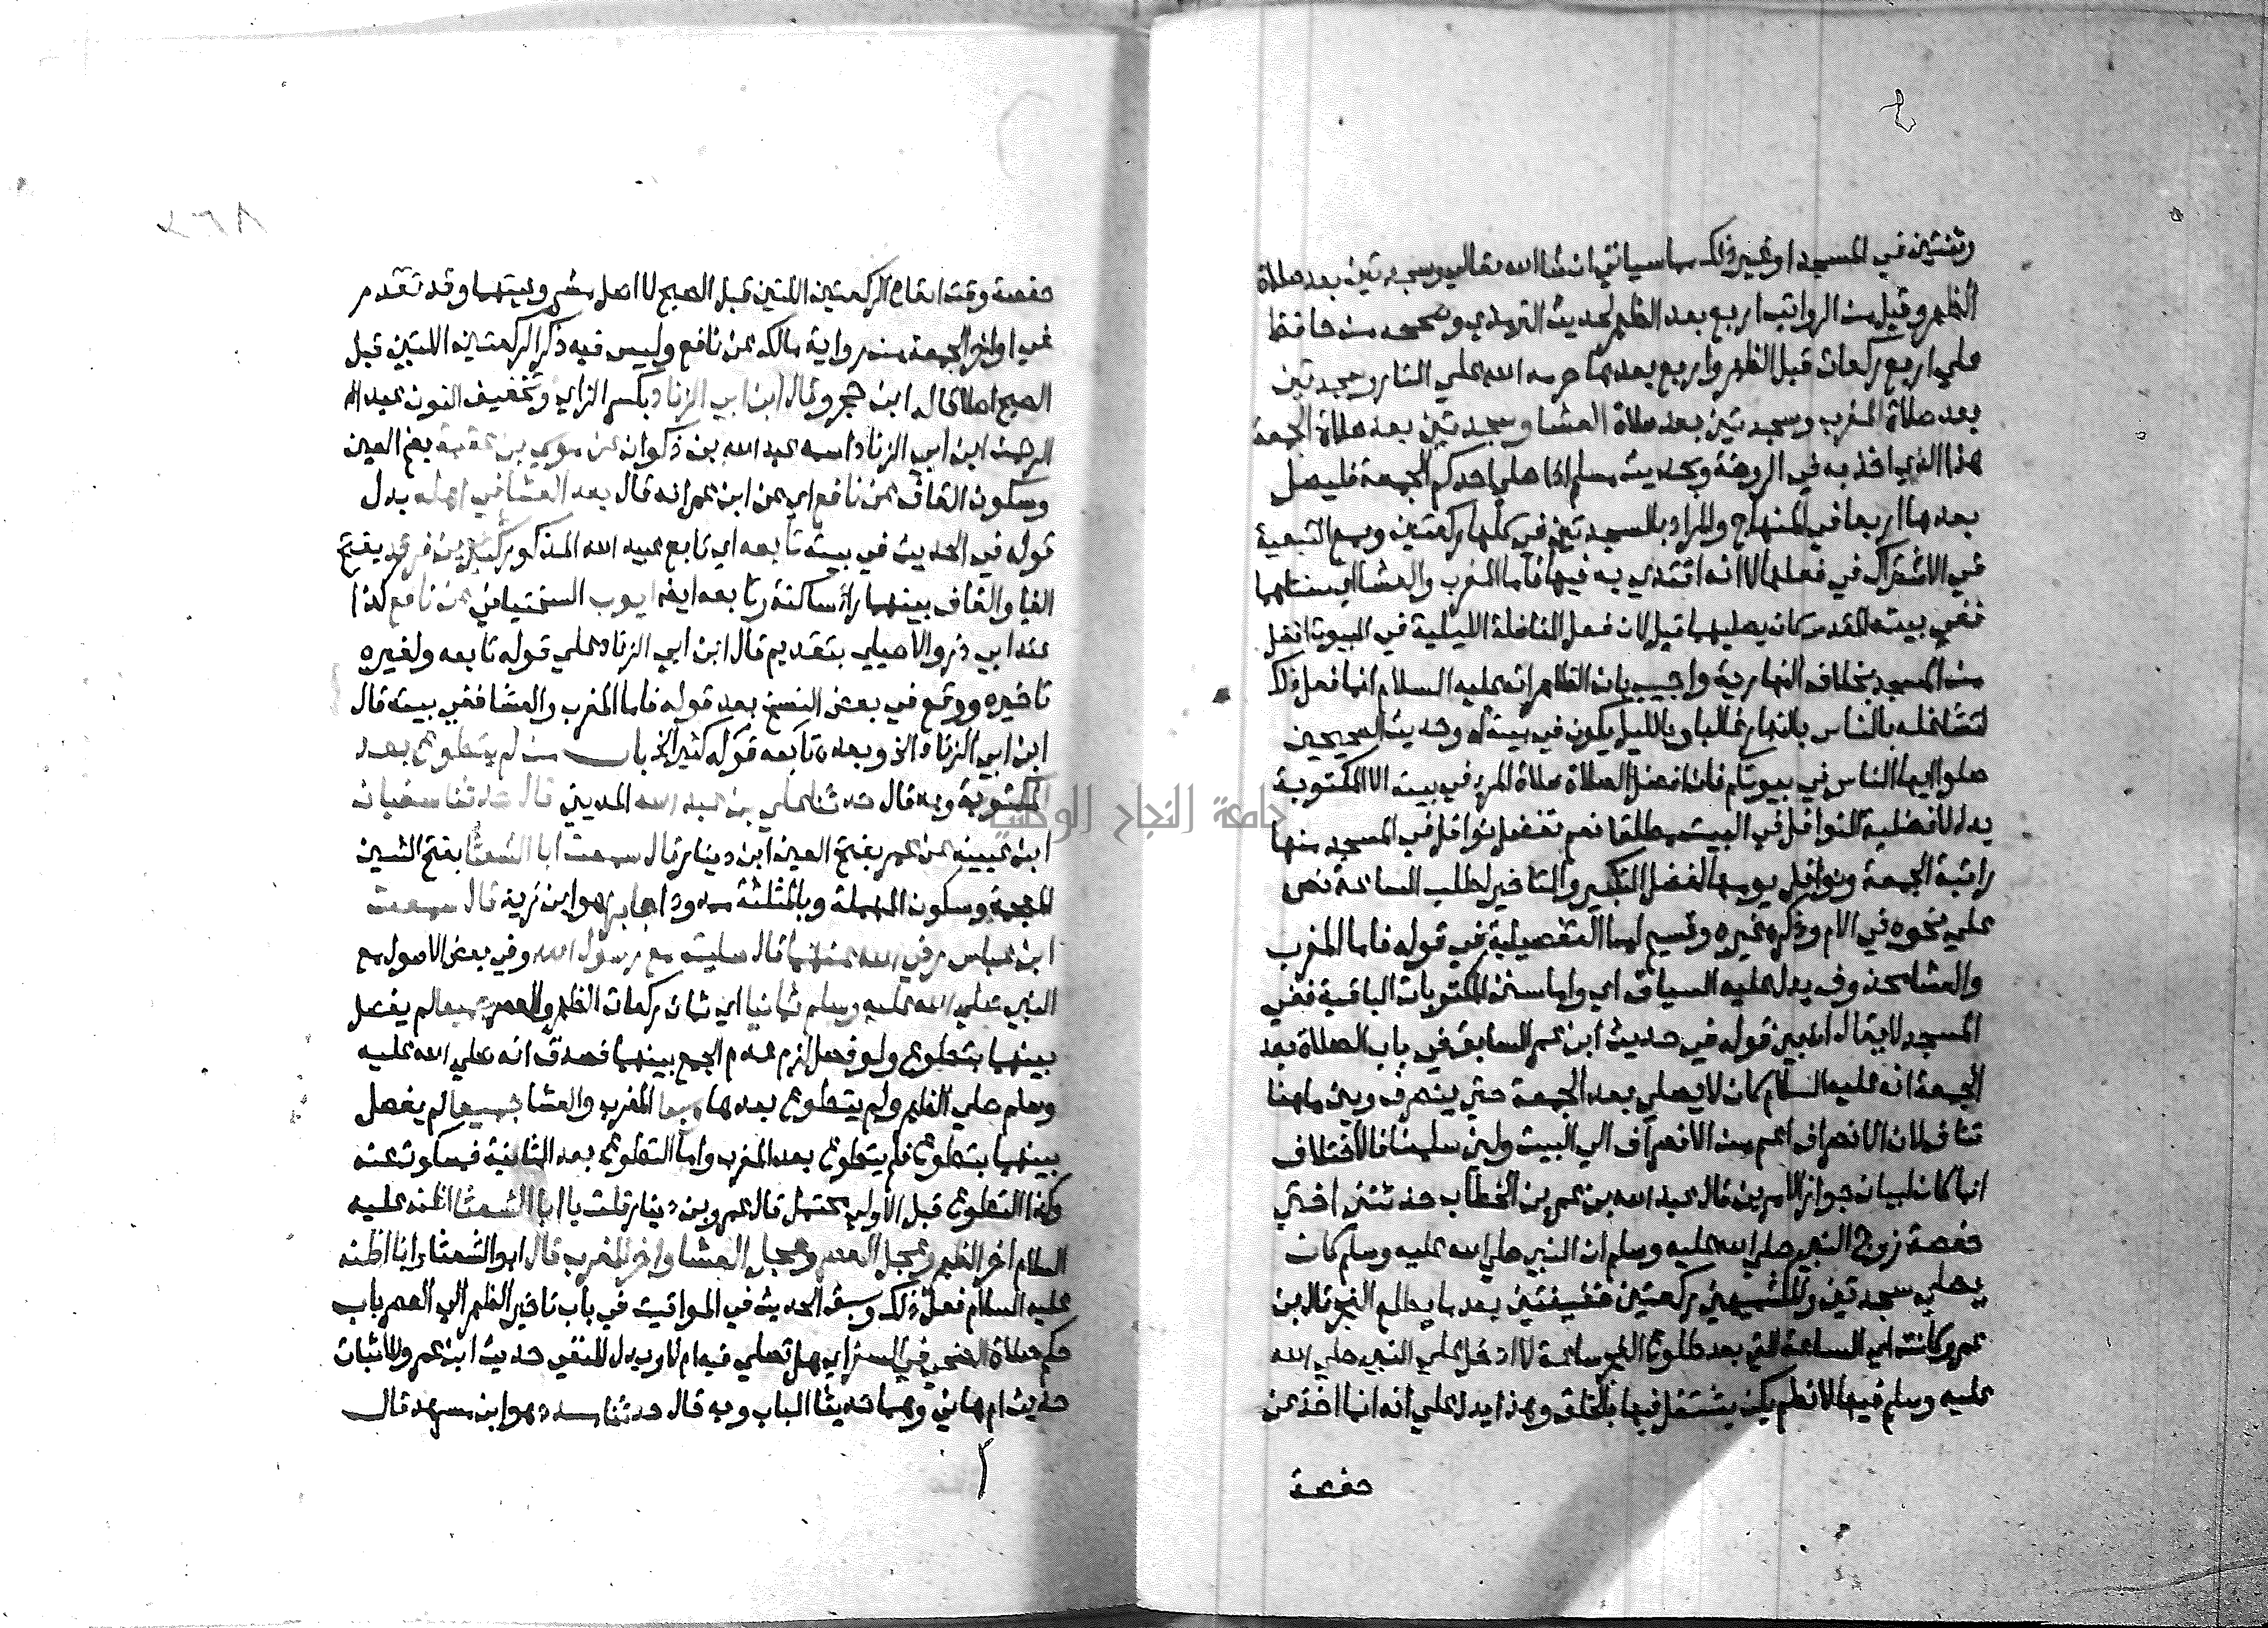 وثنتين في المسجد او غير ذلك مما سياتي ان شا الله تعالي وسجدتين بعد صلاة
الظهر وقيل من الرواتب اربع بعد الظهر لحديث الترمذي وصححه من حافظ
علي اربع ركعات قبل الظهر واربع بعدها حرمه الله علي النار وسجدتين
بعد صلاة المغرب وسجدتين بعد صلاة العشا وسجدتين بعد صلاة الجمعة
هذا الذي اخذ به في الروضة وبحديث مسلم اذا صلي احدكم الجمعة فليصل
بعدها اربعا في المنهاج والمراد بالسجدتين في كلها ركعتين ومع التبعية
في الاشتراك في فعلها لا انه اقتدي به فيها فاما المغرب والعشا اي سنتاهما
ففي بيته المقدس كان يصليهما قيل لان فعل النافلة الليلية في البيوت افضل
من المسجد بخلاف النهارية واجيب بان الظاهر انه عليه السلام انما فعل ذلك
لتشاغله بالناس بالنهار غالبا وبالليل يكون في بيته له وحديث الصحيحين
صلوا ايها الناس في بيوتكم فان افضل الصلاة صلاة المرء في بيته الا المكتوبة
يدل لافضلية النوافل في البيت مطلقا نعم تفضل نوافل في المسجد منها
راتبة الجمعة ونوافل يومها لفضل التبكير والتاخير لطلب الساعة نص
علي نحوه في الام وذكره غيره وقسيم اما التفصيلية في قوله فاما المغرب
والعشا محذوف يدل عليه السياق اي واما سنن المكتوبات الباقية ففي
المسجد لا يقال ان بين قوله في حديث ابن عمر السابق في باب الصلاة بعد
الجمعة انه عليه السلام كان لا يصلي بعد الجمعة حتي ينصرف وبين ما هنا
تناف لان الانصراف اعم من الانصراف الي البيت ولين سلمنا فالاختلاف
انما كان لبيان جواز الامرين قال عبد الله بن عمر بن الخطاب حدثتني اختي
حفصة زوج النبي صلي الله عليه وسلم ان النبي صلي الله عليه وسلم كان
يصلي سجدتين وللكشميهني ركعتين خفيفتين بعد ما يطلع الفجر قال بن
عمر وكانت اي الساعة التي بعد طلوع الفجر ساعة لا ادخل علي النبي صلي الله
عليه وسلم فيها لانه لم يكن يشتغل فيها بالخلق وهذا يدل علي انه انما اخذ عن
حفصة
حفصة وقت ايقاع الركعتين اللتين قبل الصبح لا اصل مشروعيتهما وقد تقدم
في اواخر الجمعة من رواية مالك عن نافع وليس فيه ذكر الركعتين اللتين قبل
الصبح اصلا قاله ابن حجر وقال ابن ابي الزناد بكسر الزاي وتخفيف النون عبد
الرحمن ابن ابي الزناد اسمه عبد الله بن ذكوان عن موسي بن عقبة بضم العين
وسكون القاف عن نافع اي عن ابن عمر انه قال بعد العشا في اهله بدل
قوله في الحديث في بيته تابعه اي تابع عبيد الله المذكور كثير بن فرقد بفتح
الفا والقاف بينهما راء ساكنة وتابعه ايضا ايوب السختياني عن نافع كذا
عند ابي ذر والاصيلي بتقديم قال ابن ابي الزناد علي قوله تابعه ولغيره
تاخيره ووقع في بعض النسخ بعد قوله فاما المغرب والعشا ففي بيته قال
ابن ابي الزناد الخ وبعده تابعه قوله كثير الخ باب من لم يتطوع بعد
المكتوبة وبه قال حدثنا علي بن عبد الله المديني قال حدثنا سفيان
ابن عيينه عن عمر بفتح العين ابن دينار قال سمعت ابا الشعثا بفتح الشين
المعجمة وسكون المهملة وبالمثلثة ممدودا جابرا هو ابن زيد قال سمعت
ابن عباس رضي الله عنهما قال صليت مع رسول الله وفي بعض الاصول مع
النبي صلي الله عليه وسلم ثمانيا اي ثمان ركعات الظهر والعصر جميعا لم يفعل
بينهما بتطوع ولو فصل لزم عدم الجمع بينهما فصدق انه صلي الله عليه
وسلم صلي الظهر ولم يتطوع بعدها وسبعا المغرب والعشا جميعا لم يفصل
بينهما بتطوع فلم يتطوع بعد المغرب واما التطوع بعد الثانية فمسكوت عنه
وكذا التطوع قبل الاولي محتمل قال عمرو بن دينار قلت يا ابا الشعثا اظنه عليه
السلام اخر الظهر وعجل العصر وعجل العشا واخر المغرب قال ابو الشعثا وانا اظنه
عليه السلام فعل ذلك وسبق الحديث في المواقيت في باب تاخير الظهر الي العصر باب
حكم صلاة الضحي في السفر اي هل تصلي فيه ام لا ويدل للنفي حديث ابن عمر وللاثبات
حديث ام هاني وهما حديثا الباب وبه قال حدثنا مسدد هو ابن مسرهد قال
جامعة النجاح الوطنية